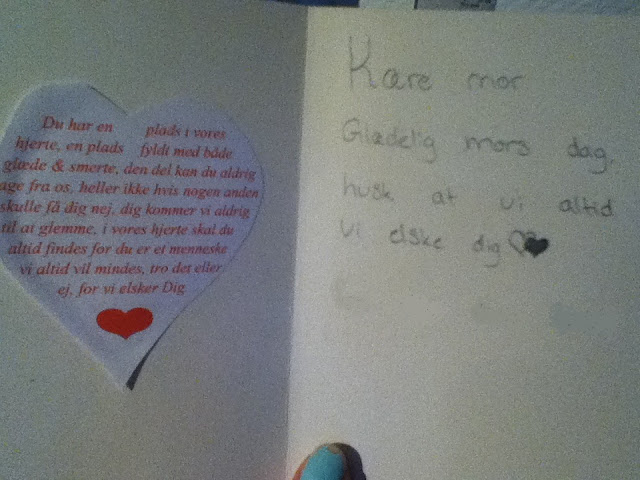 Du har en plads i vores
hjerte, en plads fyldt med både
glæde & smerte, den del kan du aldrig
age fra os, heller ikke hvis nogen anden
skulle få dig nej, dig kommer vi aldrig
til at glemme, i vores hjerte skal du
altid findes for du er et menneske
vi altid vil mindes, tro det eller
ej, for vi elsker Dig
Kære mor
Glædelig mors dag,
husk at vi altid
vi elske dig